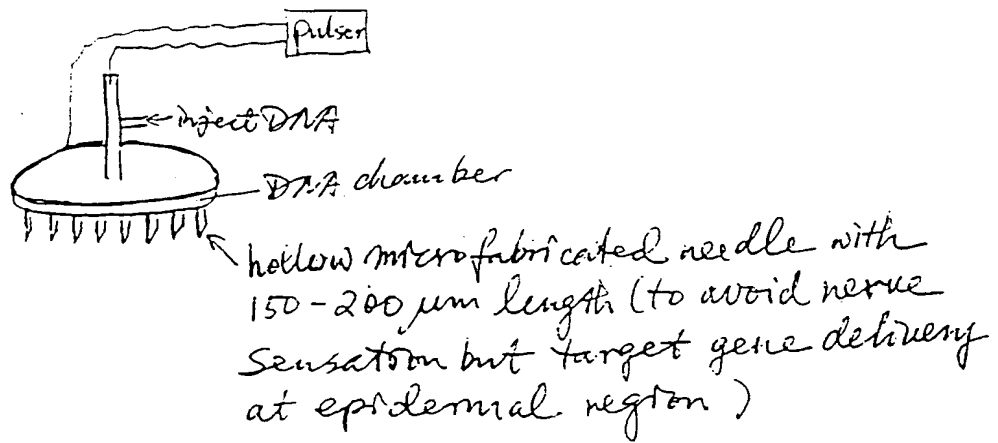 pulser
inject DNA
DNA chamber
hollow microfabricated needle with
150-200 μm length (to avoid nerve
sensation but target gene delivery
at epidermal region)